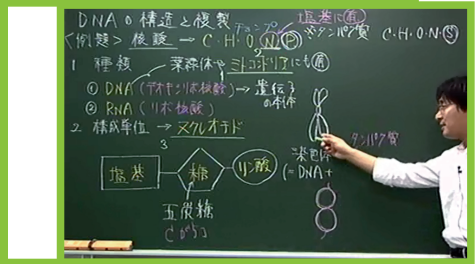 DNAの構造と複製
チョンプ
塩基に有
<例題> 核酸 → C・H・O・N・P
※タンパク質 C・H・O・N・S
1 種類 葉緑体やミトコンドリアにも有
① DNA (デオキシリボ核酸) → 遺伝子の本体
② RNA (リボ核酸)
2 構成単位 → ヌクレオチド
3
塩基 糖 リン酸
五炭糖
Cが5コ
タンパク質
染色体
(= DNA +